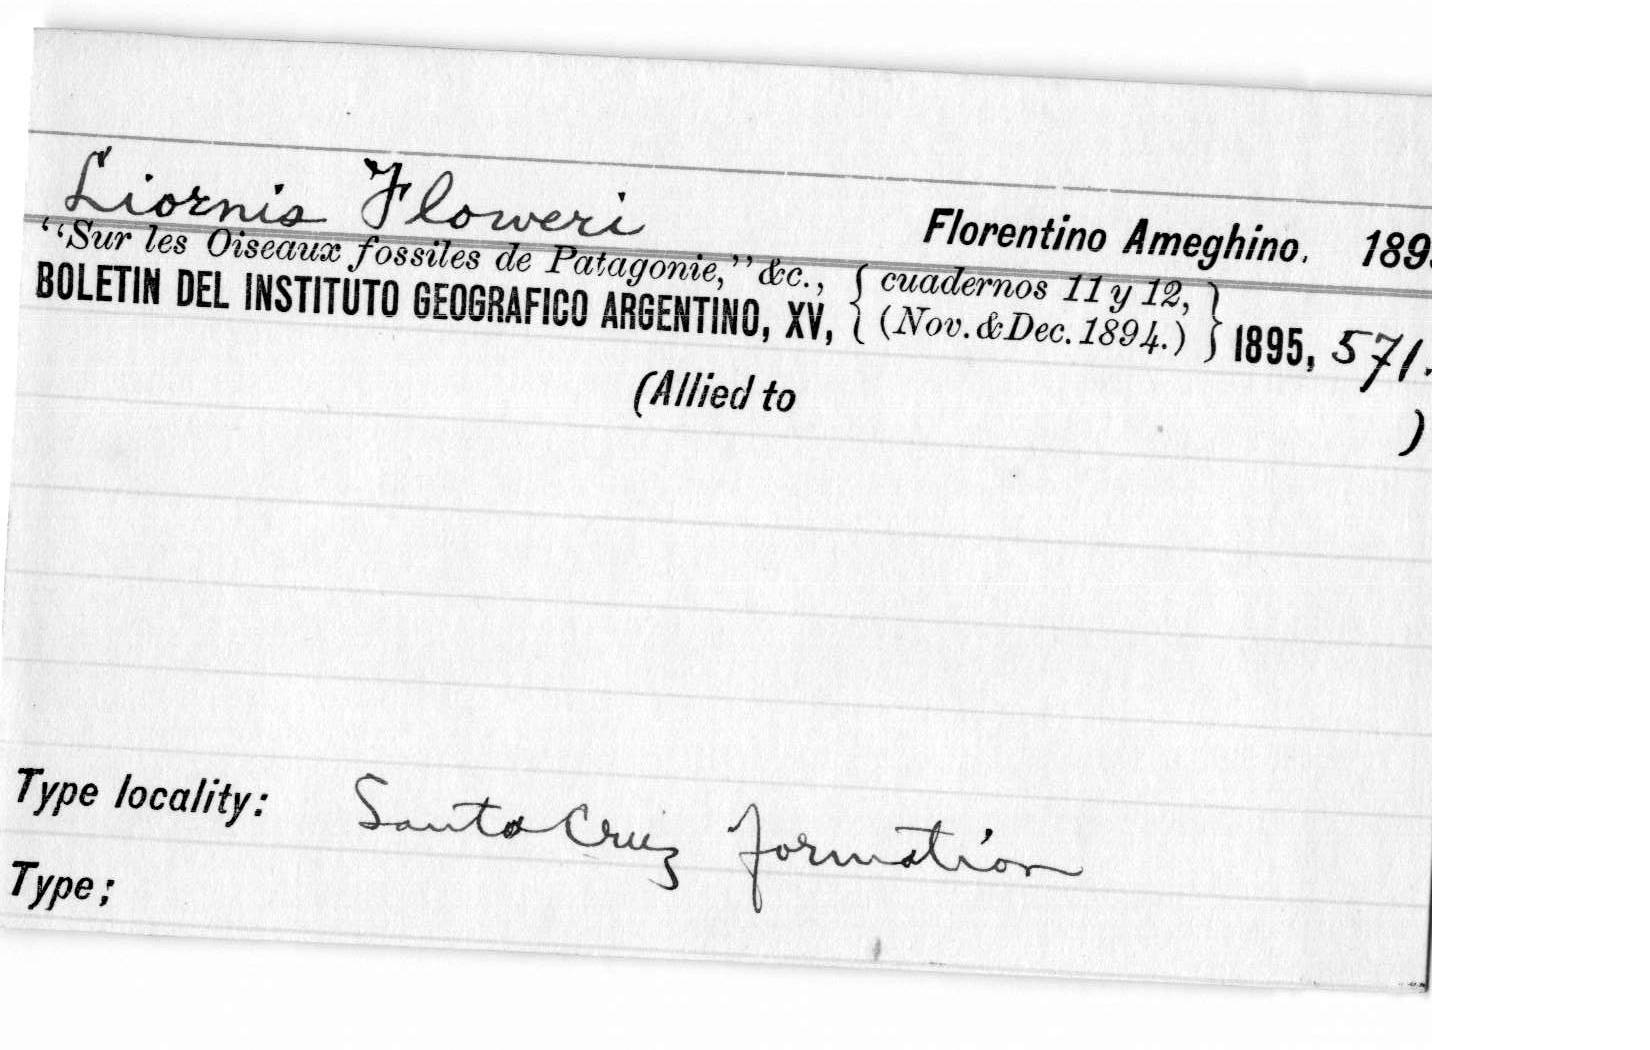 Liornis Floweri Florentino Ameghino. 189
"Sur les Oiseaux fossiles de Patagonie," &c., { cuadernos 11 y 12, }
BOLETIN DEL INSTITUTO GEOGRAFICO ARGENTINO, XV, { (Nov. & Dec. 1894.) } 1895, 571.
(Allied to )
Type locality: Santa Cruz formation
Type;